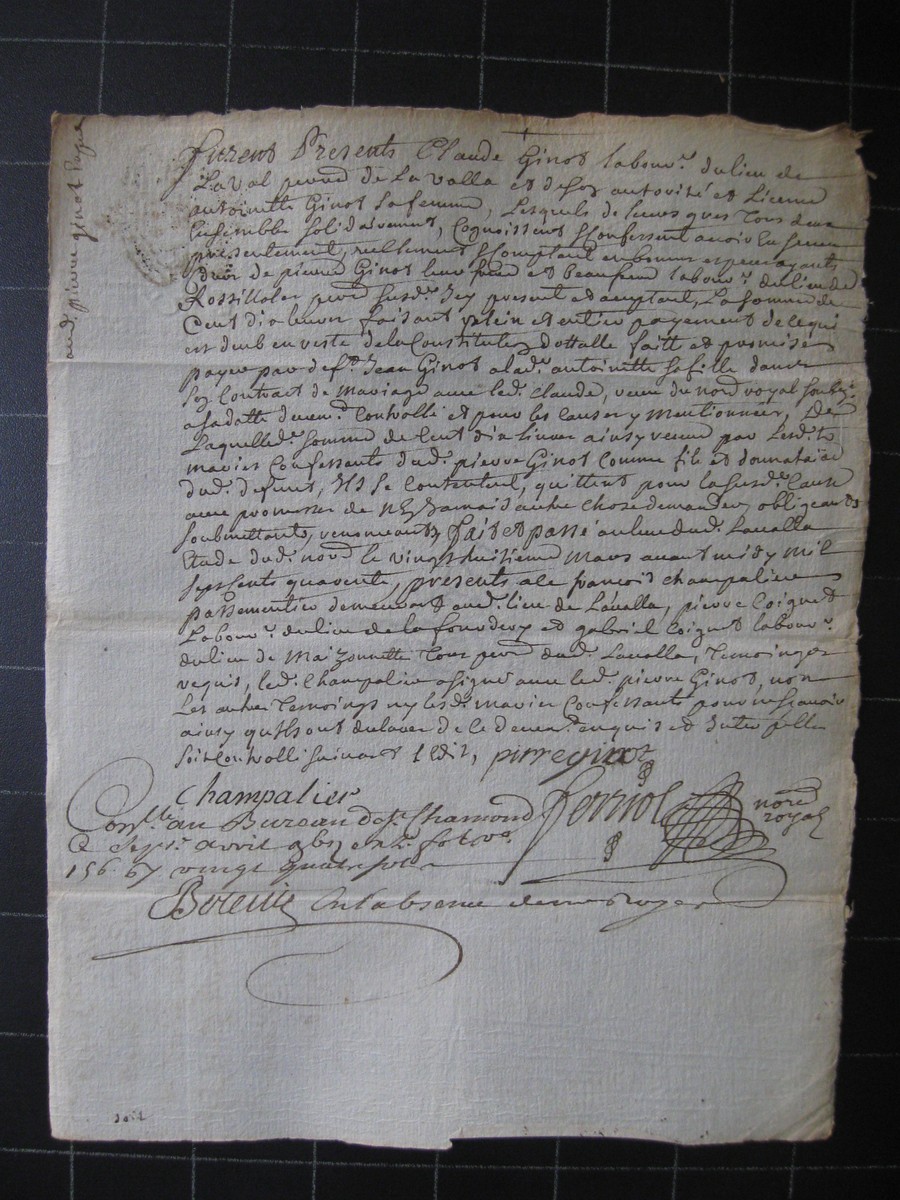 aud. pierre ginot paÿne
furent Presents Claude Ginot labour.r du lieu de
Laval parod de Lavalla et de son autorité et Licence
antoinette Ginot sa femme, Lesquels de leurs gres tous deux
Ensemble solidairement, Cognoissent & Confessent avoir Eu & receu
presentement, reellement & Comptant en bonnes especes ayants
de pierre Ginot leur frere et beaufrere labour.r du lieu de
Rossillolet parod susd. Icy present et acceptant, La somme de
Cent dix livres faisant plein et entier payement de ce qui
est deub en reste de la Constitut.on dottalle faitte et promise
payer par def.t Jean Ginot a lad. antoinette sa fille dans
son Contract de mariage avec led. Claude, receu du nore royal soubz.e
a sa datte duem.t Controllé et pour les causes y Mentionnées, De
Laquelle d. somme de Cent dix livres ainsy receue par Lesd.
mariés Confessants dud. pierre Ginot Comme fils et donnataire
dud. defunt, Ils se Contentent, quittent pour la susd. Cause
avec promesse de n'En Jamais autre chose demander, obligeants
soubmettants, renonceants, fait et passé au lieu dud. Lavalla
Etude dud. nore le vingt huitieme Mars avant midy mil
sept cents quarente, presents a ce françois champalier
passementier demeurant aud. lieu de Lavalla, pierre Coignet
Labour.r du lieu de la fourdery et gabriel Coignet labour.r
du lieu de Maizonnette tous parod dud. Lavalla, Temoings
requis, led. Champalier a signé avec led. pierre Ginot, non
Les autres Temoings ny lesd. mariés Confessants pour ne sçavoir
ainsy qu'ils ont declaré de ce deuem.t enquis et Interpellés
soit Controllé suivant l'Edit, pierre ginot
champalier
Ferriol nore royal
Con.lle au Bureau de St Chamond
Ce sept.e avril
156 vingt quatre sols
en l'absence de mr Royer